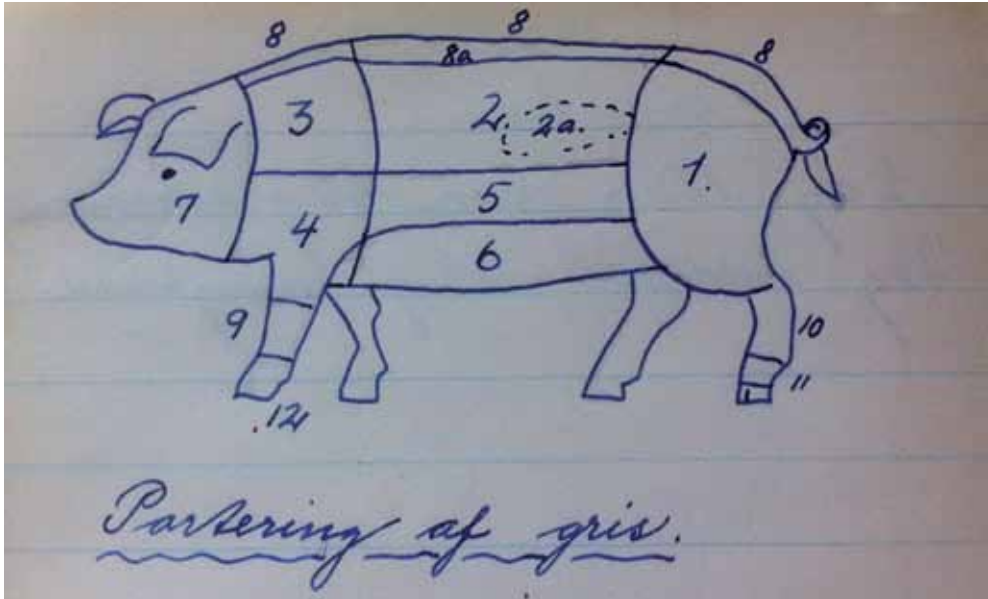 8 8 8
8a
3 2. 2a.
7 4 5 1.
6
9 10
11
12
Partering af gris.